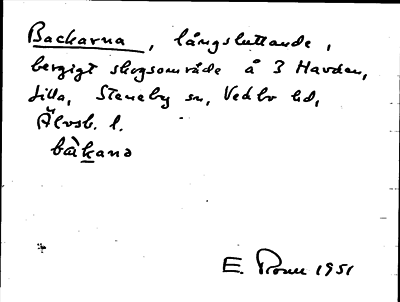 Backarna, långsluttande,
bergigt skogsområde å 3 Havden,
Lilla, Steneby sn, Vedbo hd,
Älvsb. l.
bàkana
E. 1951